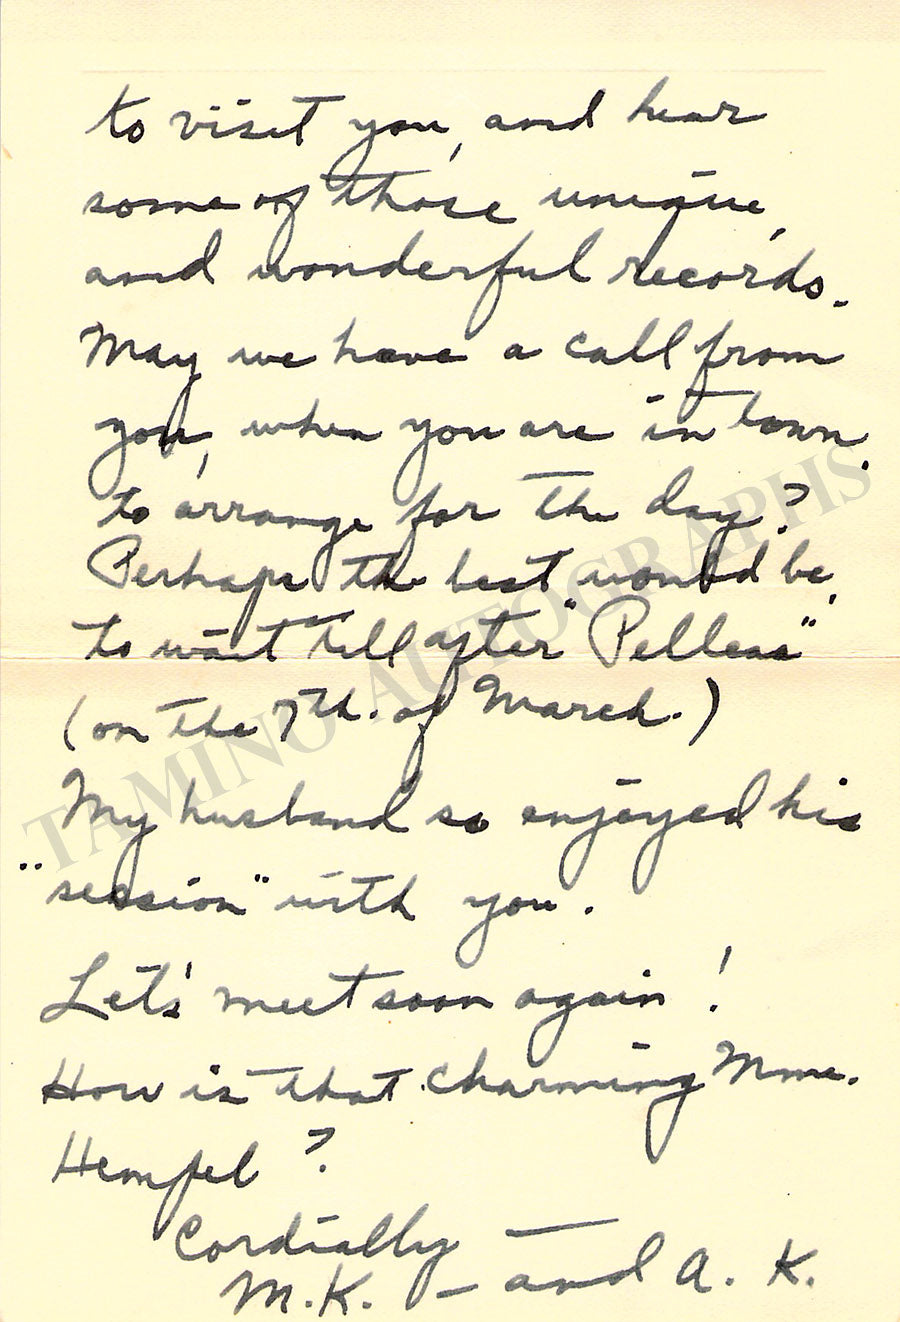 to visit you, and hear
some of those unique,
and wonderful records.
May we have a call from
you, when you are in town,
to arrange for the day?
Perhaps the best would be,
to wait till after "Pelleas"
(on the 7th. of March.)
My husband so enjoyed his
"session" with you.
Let's meet soon again!
How is that charming Mme.
Hempel?
Cordially —
M.K. – and A. K.
TAMINO AUTOGRAPHS